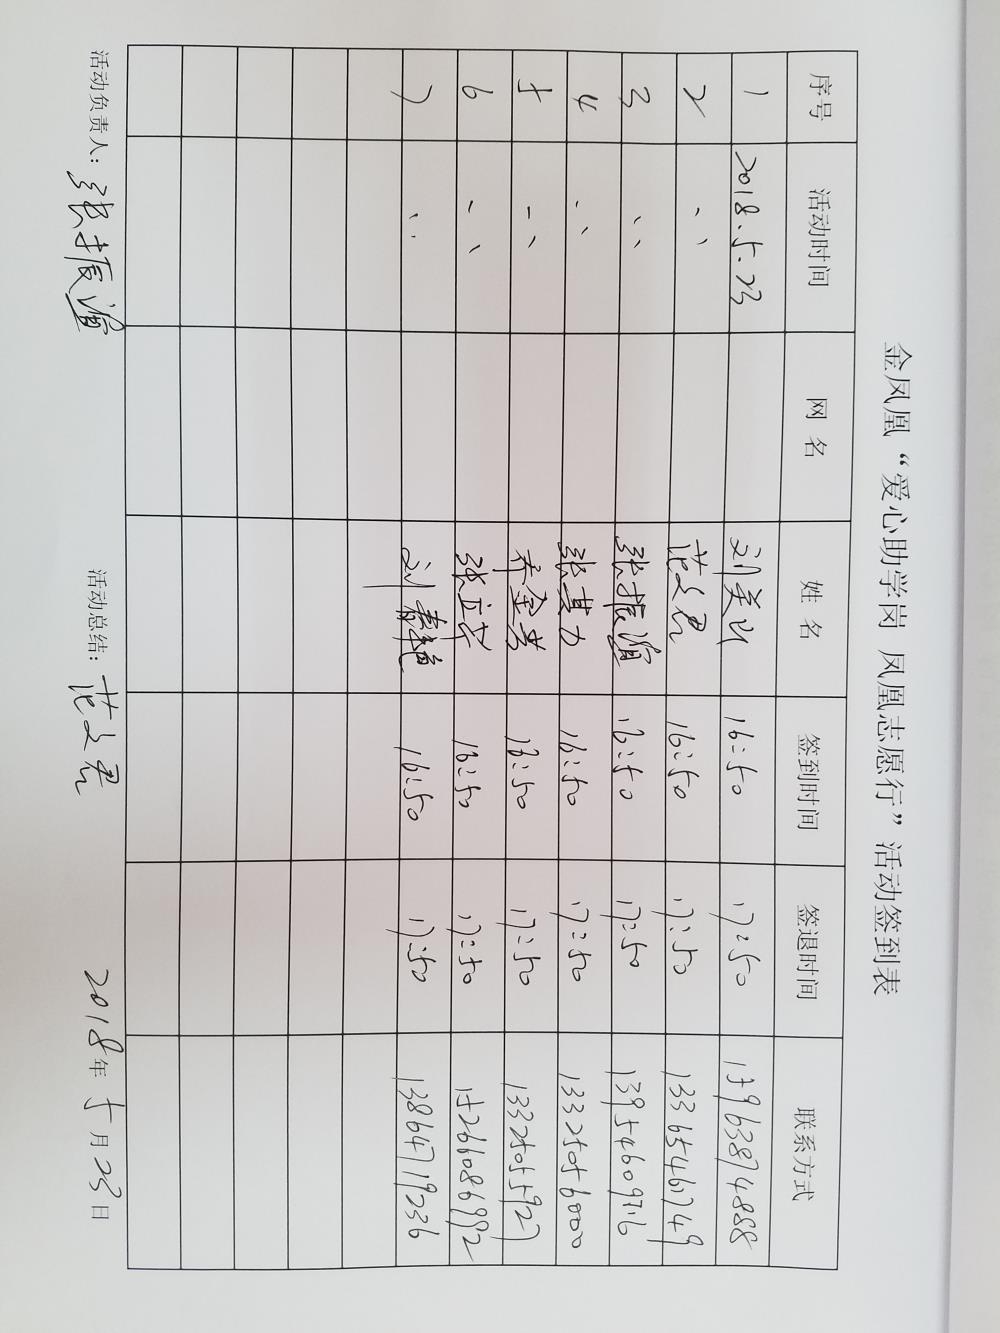 金凤凰“爱心助学岗 凤凰志愿行”活动签到表
序号 活动时间 网 名 姓 名 签到时间 签退时间 联系方式
1 2018.5.23 刘美山 16:50 17:50 15963874888
2 、、 范文君 16:50 17:50 13365461749
3 、、 张振渔 16:50 17:50 13954609716
4 、、 张其力 16:50 17:50 13325056000
5 、、 乔金芳 16:50 17:50 13325055927
6 、、 张立军 16:50 17:50 15266086992
7 、、 刘春艳 16:50 17:50 13864719236
活动负责人：张振渔 活动总结：范文君 2018年5月23日